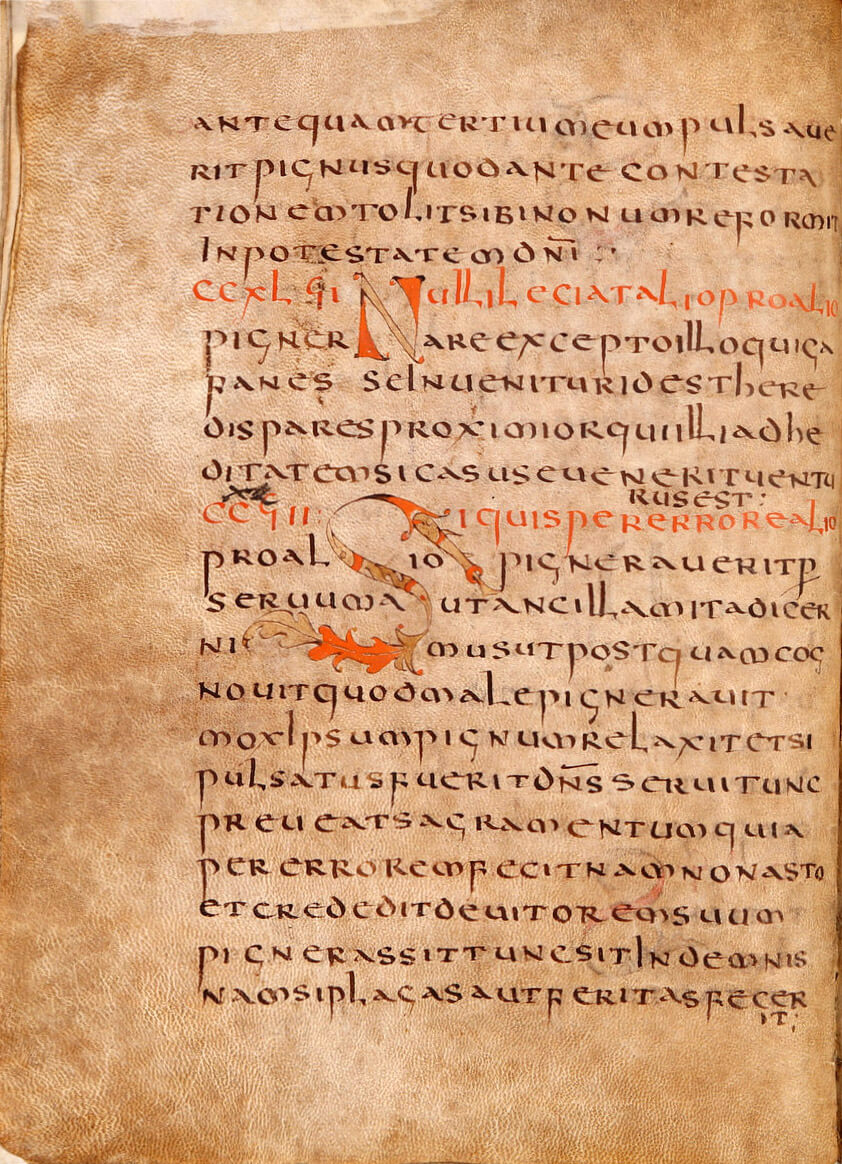 ANTEQUAMTERTIUMEUMPULSAUE
RITPIGNUSQUODANTECONTESTA
TIONEMTOLITSIBINONUMREFORMIT
INPOTESTATEMDNI
CCXLVI NULLILECIATALIOPROALIO
PIGNERAREEXCEPTOILLOQUIGA
FANESSEINUENITURIDESTHERE
DISPARESPROXIMIORQUIILLIADHE
DITATEMSICASUSEUENERITUENTU
RUSEST:
SIQUISPERERROREALIO
PROALIOPIGNERAUERITP
SERUUMAUTANCILLAMITADICER
NIMUSUTPOSTQUAMCOG
NOUITQUODMALEPIGNERAUIT
MOXIPSUMPIGNUMRELAXITETSI
PULSATUSFUERITDNSSERUITUNC
PREUEATSAGRAMENTUMQUIA
PERERROREMFECITNAMNONASTO
ETCREDEDITDEUITOREMSUUM
PIGNERASSITTUNCSITINDEMNIS
NAMSIPLAGASAUTFERITASFECER
IT;